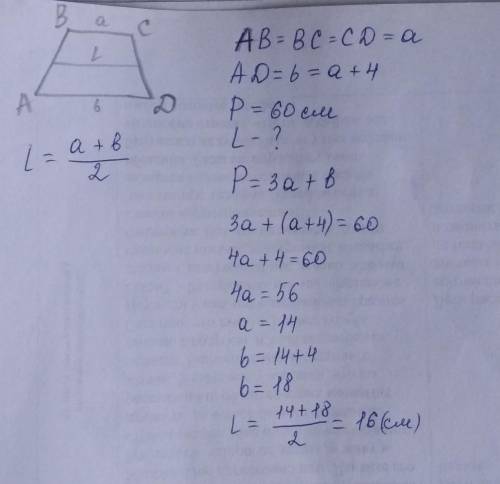 B a C
L
A b D
L = (a + b) / 2
AB = BC = CD = a
AD = b = a + 4
P = 60 см
L - ?
P = 3a + b
3a + (a+4) = 60
4a + 4 = 60
4a = 56
a = 14
b = 14+4
b = 18
L = (14+18) / 2 = 16 (см)